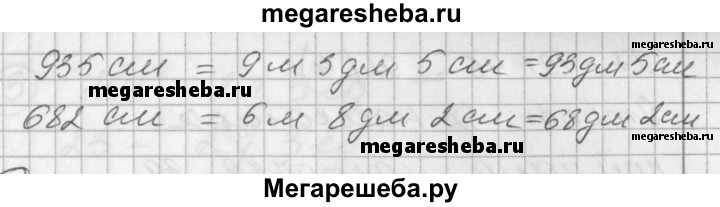 megaresheba.ru
megaresheba.ru
935 см = 9 м 3 дм 5 см = 93 дм 5 см
megaresheba.ru
682 см = 6 м 8 дм 2 см = 68 дм 2 см
megaresheba.ru
Мегарешеба.ру